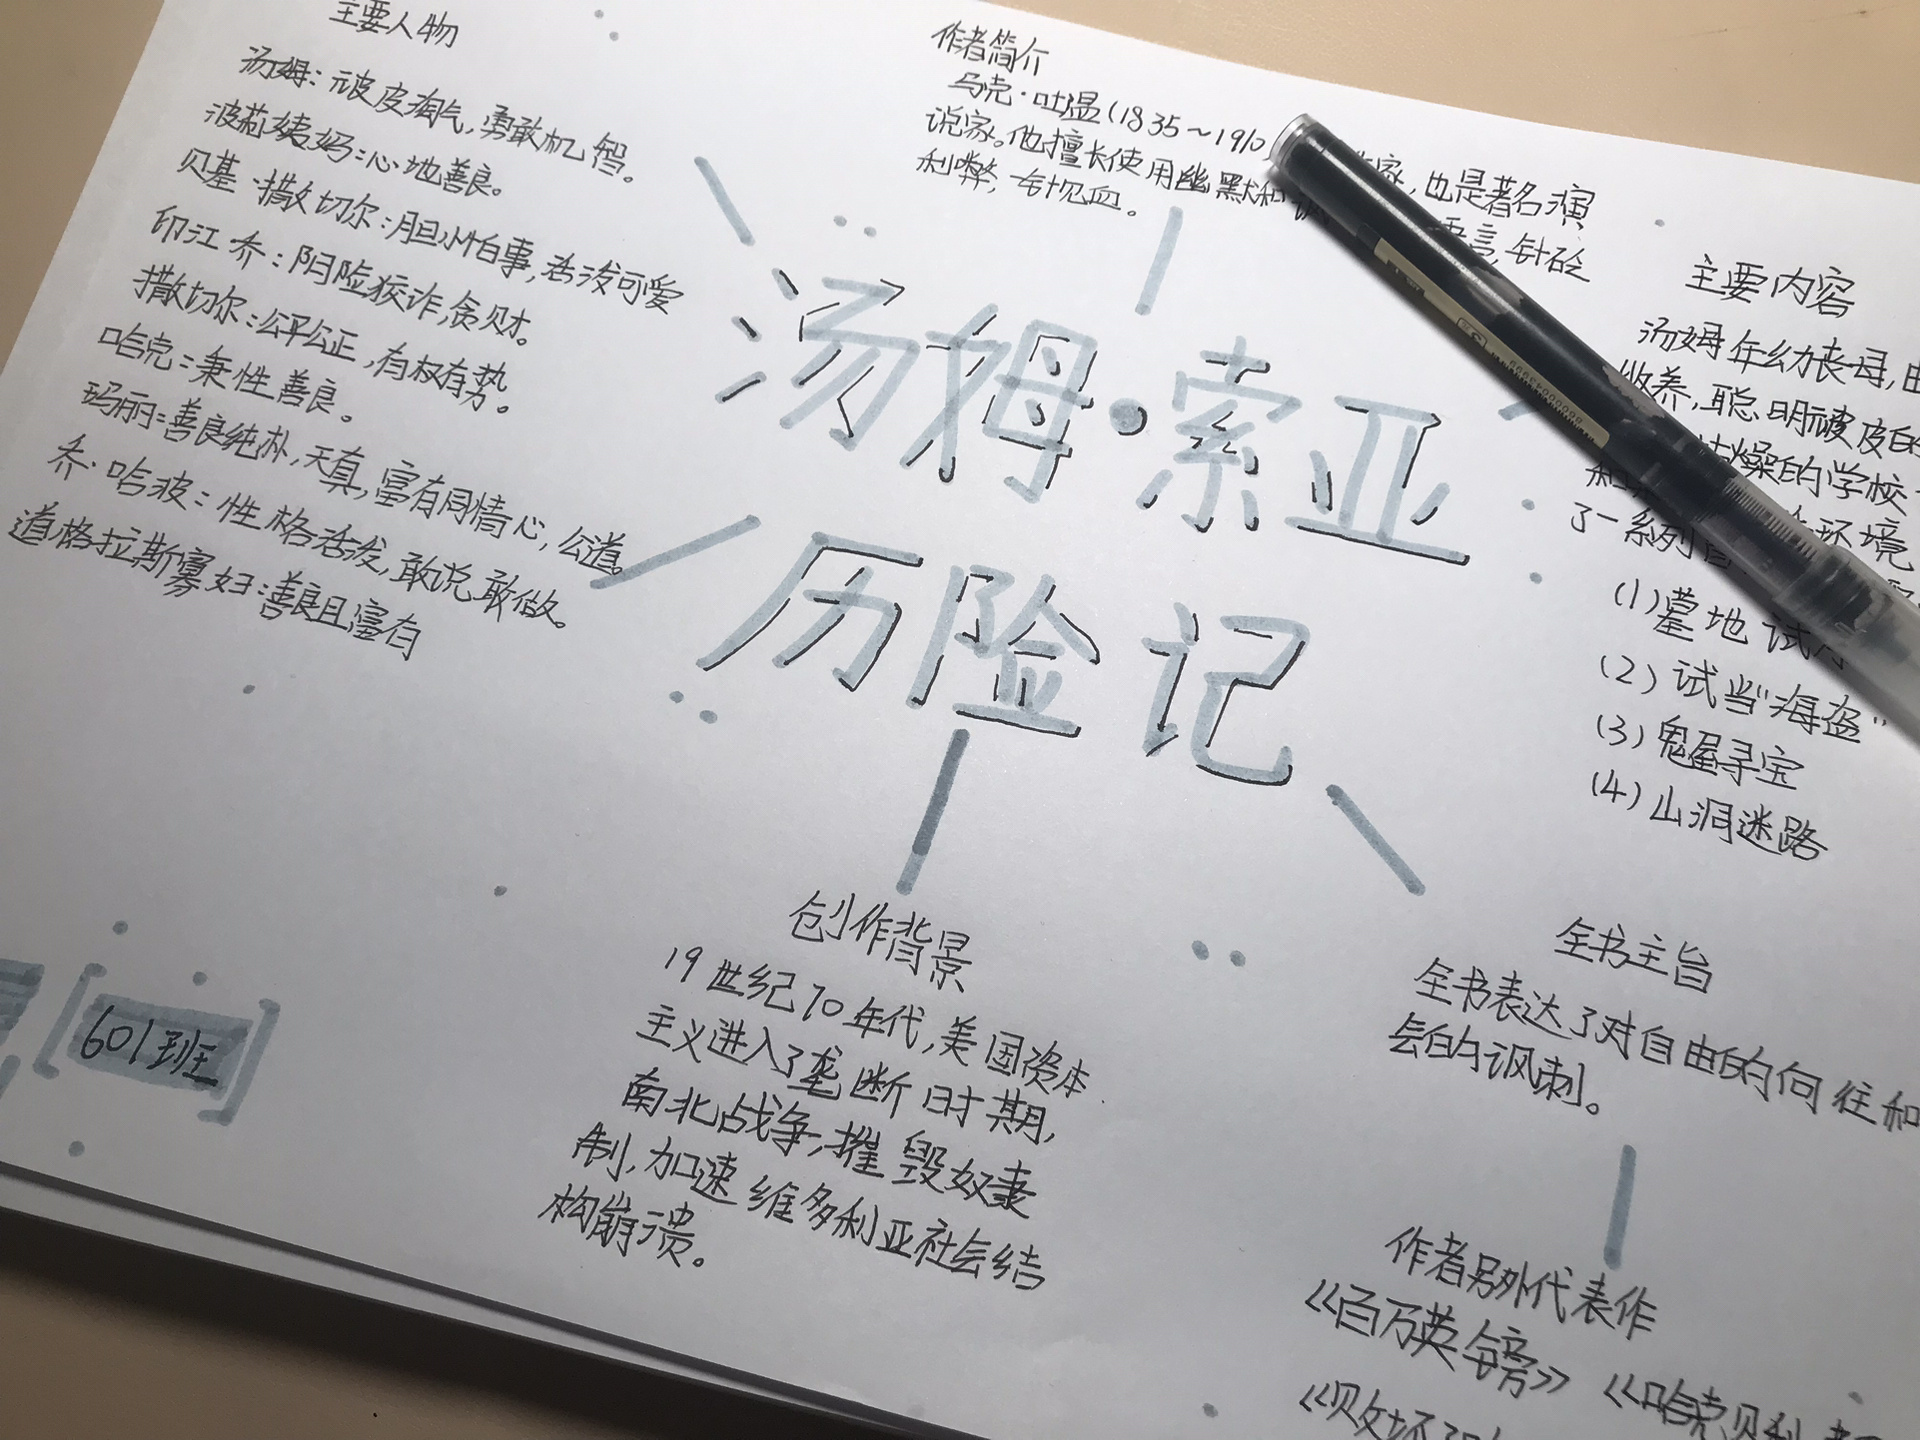 主要人物
汤姆：顽皮淘气，勇敢机智。
波莉姨妈：心地善良。
贝基·撒切尔：胆小怕事，活泼可爱
印江乔：阴险狡诈，贪财。
撒切尔：公平公正，有权有势。
哈克：秉性善良。
玛丽：善良纯朴，天真，富有同情心，公道。
乔·哈波：性格活泼，敢说敢做。
道格拉斯寡妇：善良且富有
作者简介
马克·吐温（1835～1910 家，也是著名演
说家。他擅长使用幽默和 语言，针砭
利弊，一针见血。
汤姆·索亚
历险记
主要内容
汤姆年幼丧母，由
收养，聪明顽皮的
枯燥的学校
环境
了一系列
（1）墓地试
（2）试当“海盗”
（3）鬼屋寻宝
（4）山洞迷路
创作背景
19世纪70年代，美国资本
主义进入了垄断时期，
南北战争，摧毁奴隶
制，加速维多利亚社会结
构崩溃。
全书主旨
全书表达了对自由的向往和
会的讽刺。
作者另外代表作
《百万英镑》《哈克贝利
《败坏了
601班